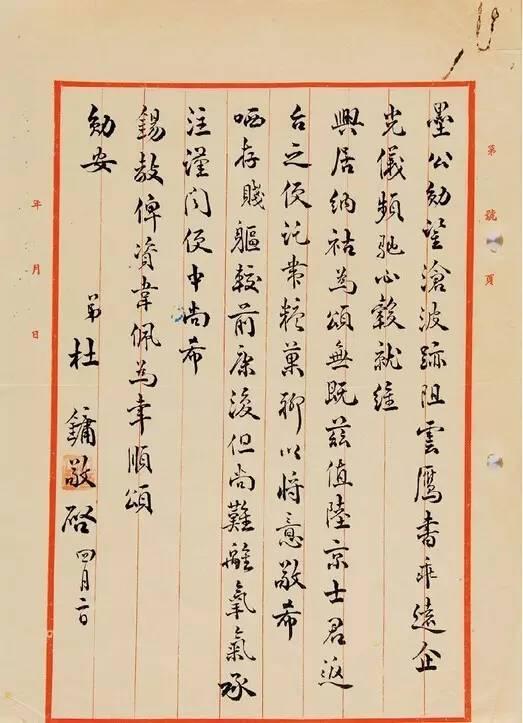 第 號 頁
墨公勛鑒滄波跡阻雲鴈書乖遠企
光儀頻馳心轂就維
興居納祜為頌無既茲值陸京士君返
台之便託帶糖菓聊以將意敬希
哂存賤軀較前康復但尚難離氧氣承
注謹聞便中尚希
錫教俾資韋佩為幸順頌
勛安
弟杜鏞敬啓 四月二日
年 月 日